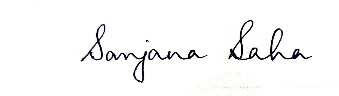 Sanjana Saha